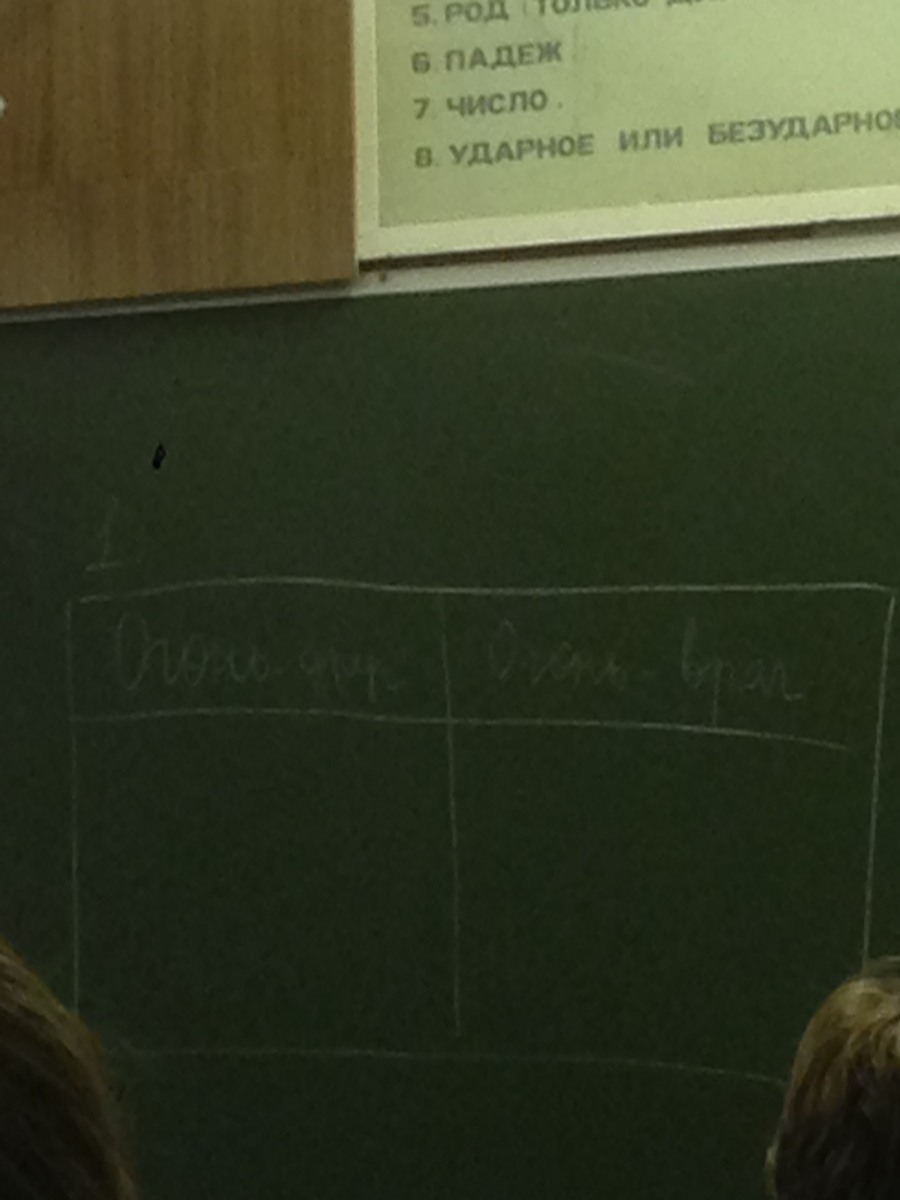 5. РОД (ТОЛЬКО
6 ПАДЕЖ
7 ЧИСЛО.
8. УДАРНОЕ ИЛИ БЕЗУДАРНОЕ
1
Огонь-друг Огонь-враг